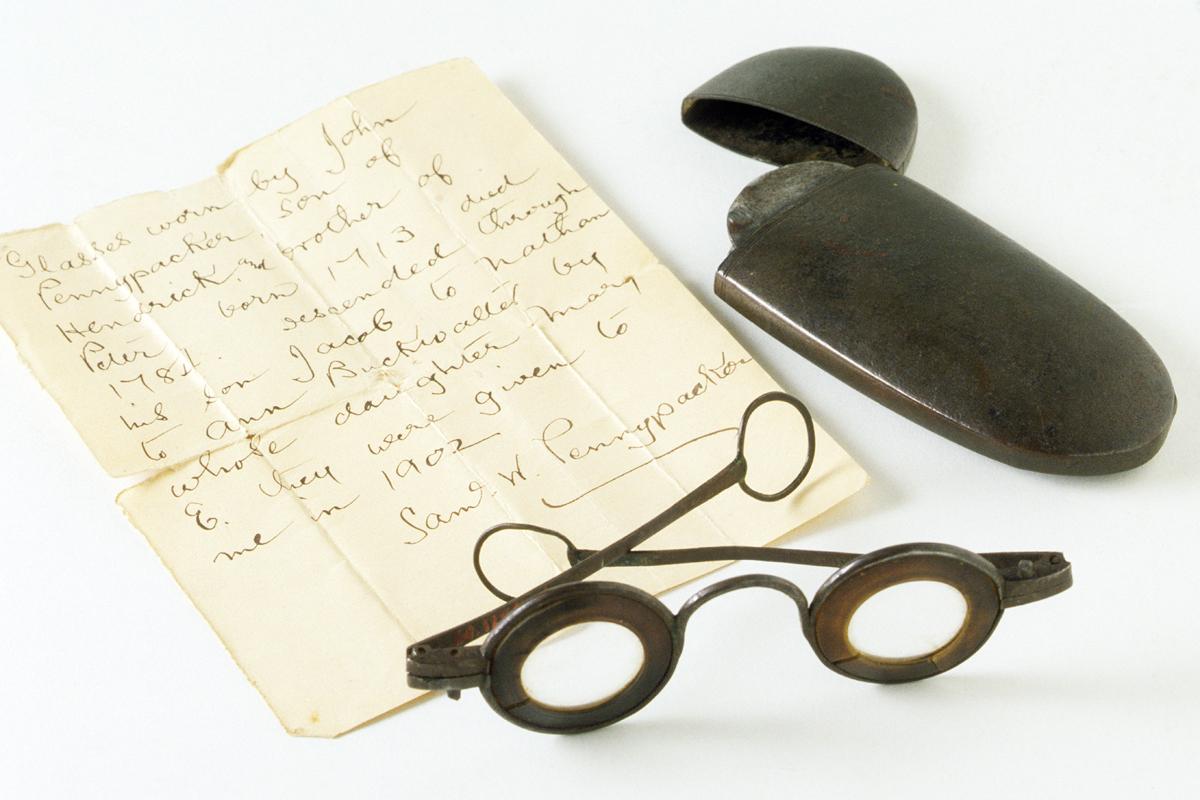 Glasses worn by John
Pennypacker son of
Hendrick and brother of
Peter born 1713 died
1784. descended through
his son Jacob to Nathan
to Ann Buckwalter by
whose daughter Mary
E. they were given to
me in 1902
Saml. W. Pennypacker